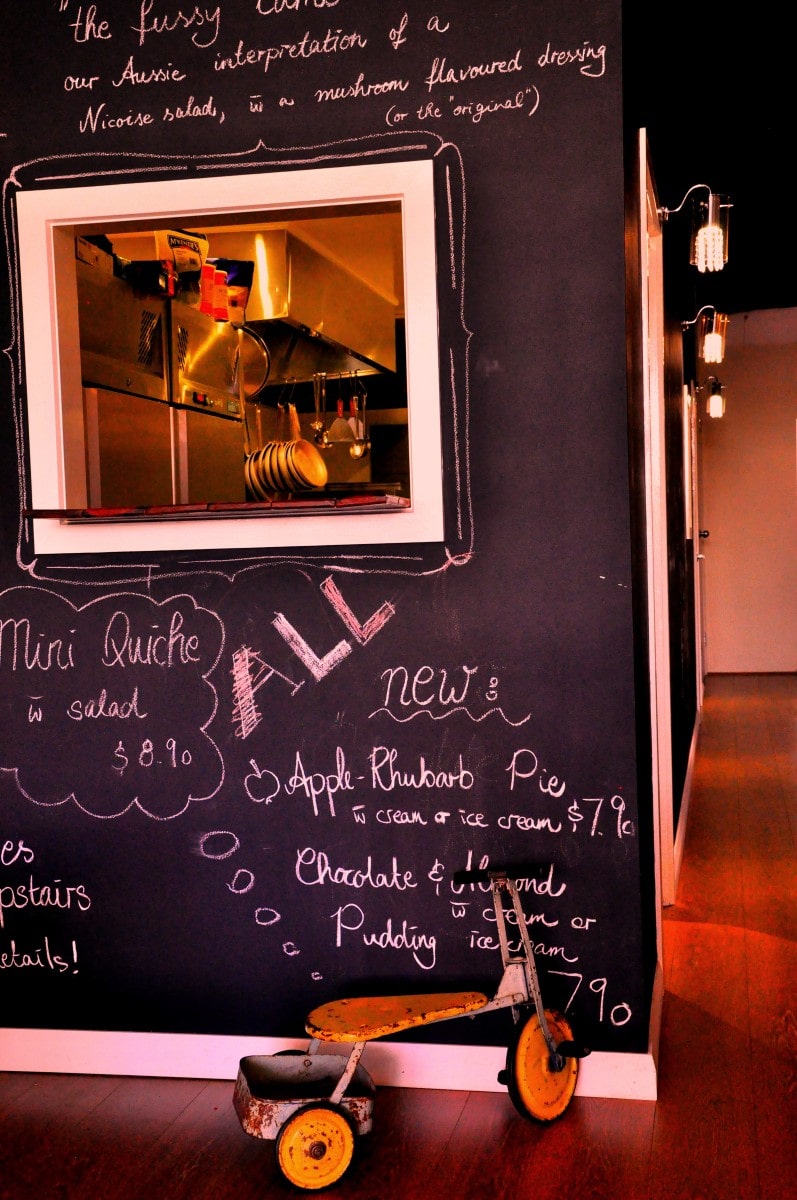 "the fussy
our Aussie interpretation of a
Nicoise salad, w̄ a mushroom flavoured dressing
(or the "original")
Mini Quiche
w̄ salad
$8.90
ALL
new:
Apple-Rhubarb Pie
w̄ cream or ice cream $7.90
Chocolate & Almond
Pudding w̄ cream or
ice cream
790
es
pstairs
etails!